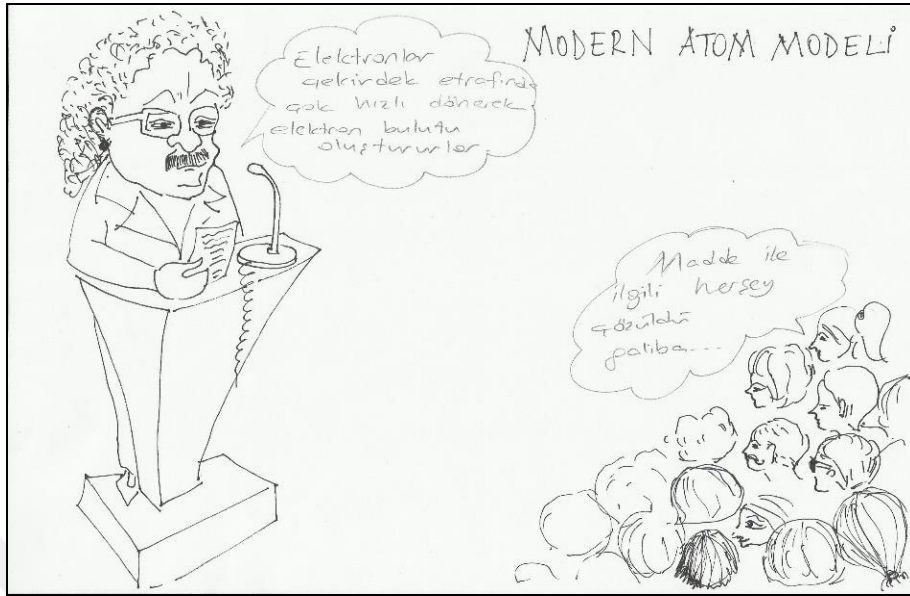 MODERN ATOM MODELİ
Elektronlar
çekirdek etrafında
çok hızlı dönerek
elektron bulutu
oluştururlar
Madde ile
ilgili herşey
çözüldü
galiba....